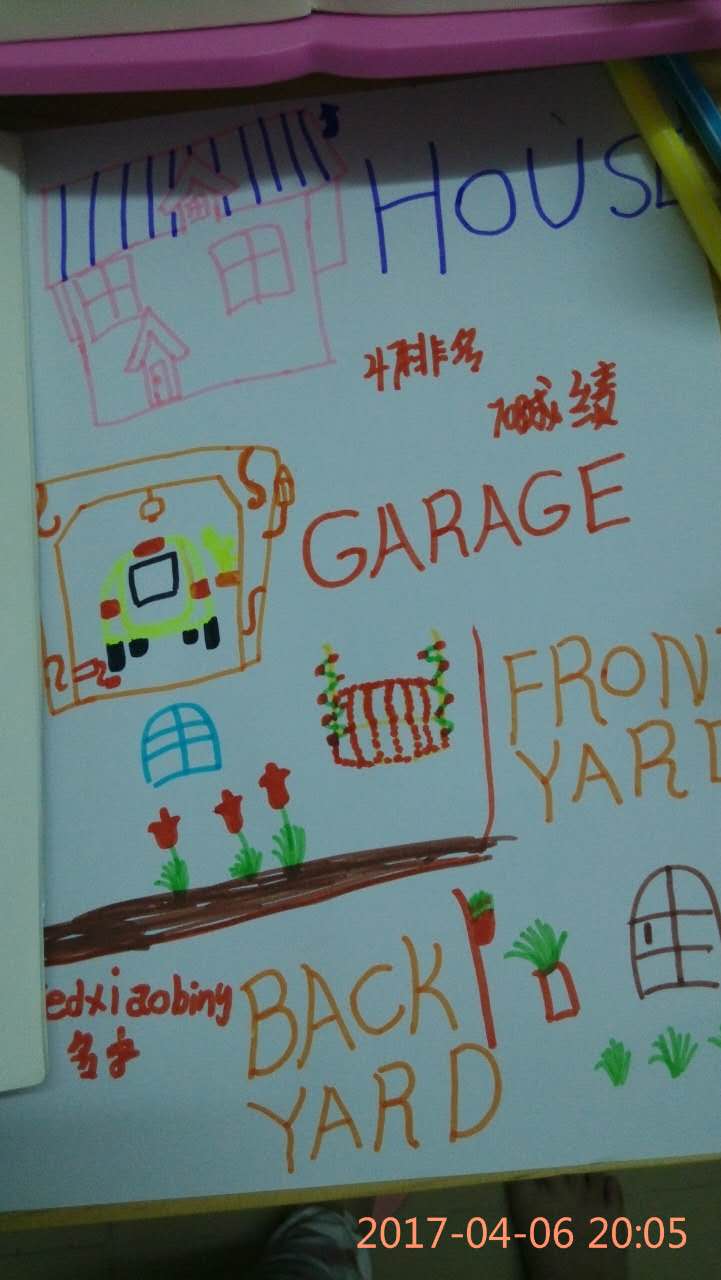 HOUSE
47排名
708成绩
GARAGE
FRONT
YARD
edxiaobing
BACK
YARD
2017-04-06 20:05